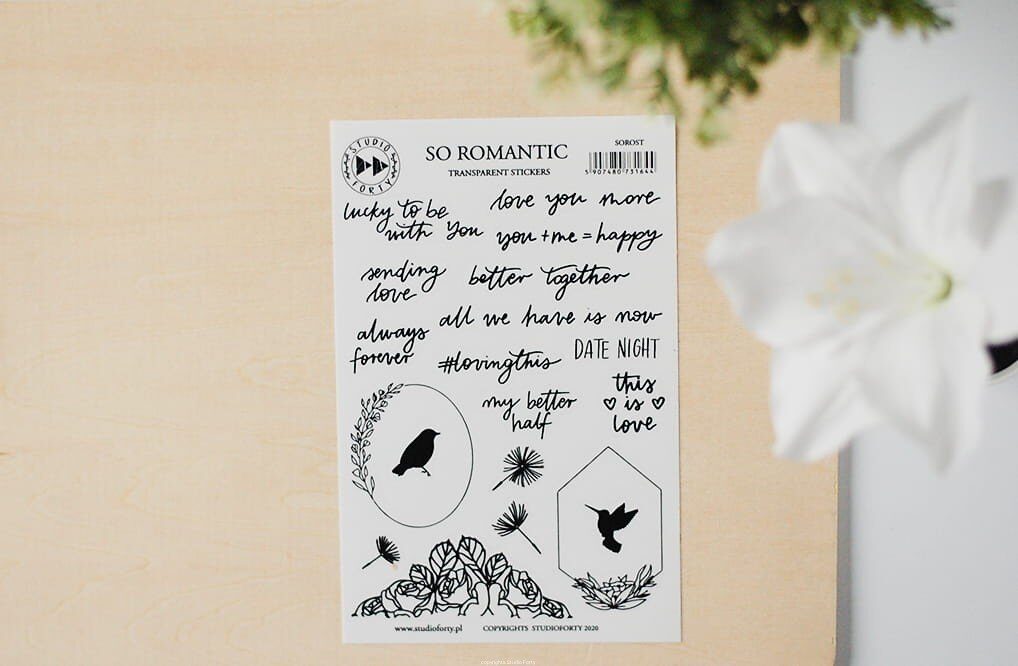 STUDIO FORTY
SO ROMANTIC
TRANSPARENT STICKERS
SOROST
5 907480 731644
lucky to be
with you
love you more
you + me = happy
sending
love
better together
all we have is now
always
forever
#lovingthis
DATE NIGHT
my better
half
this
♡ is ♡
love
www.studioforty.pl COPYRIGHTS STUDIOFORTY 2020
copyrights Studio Forty